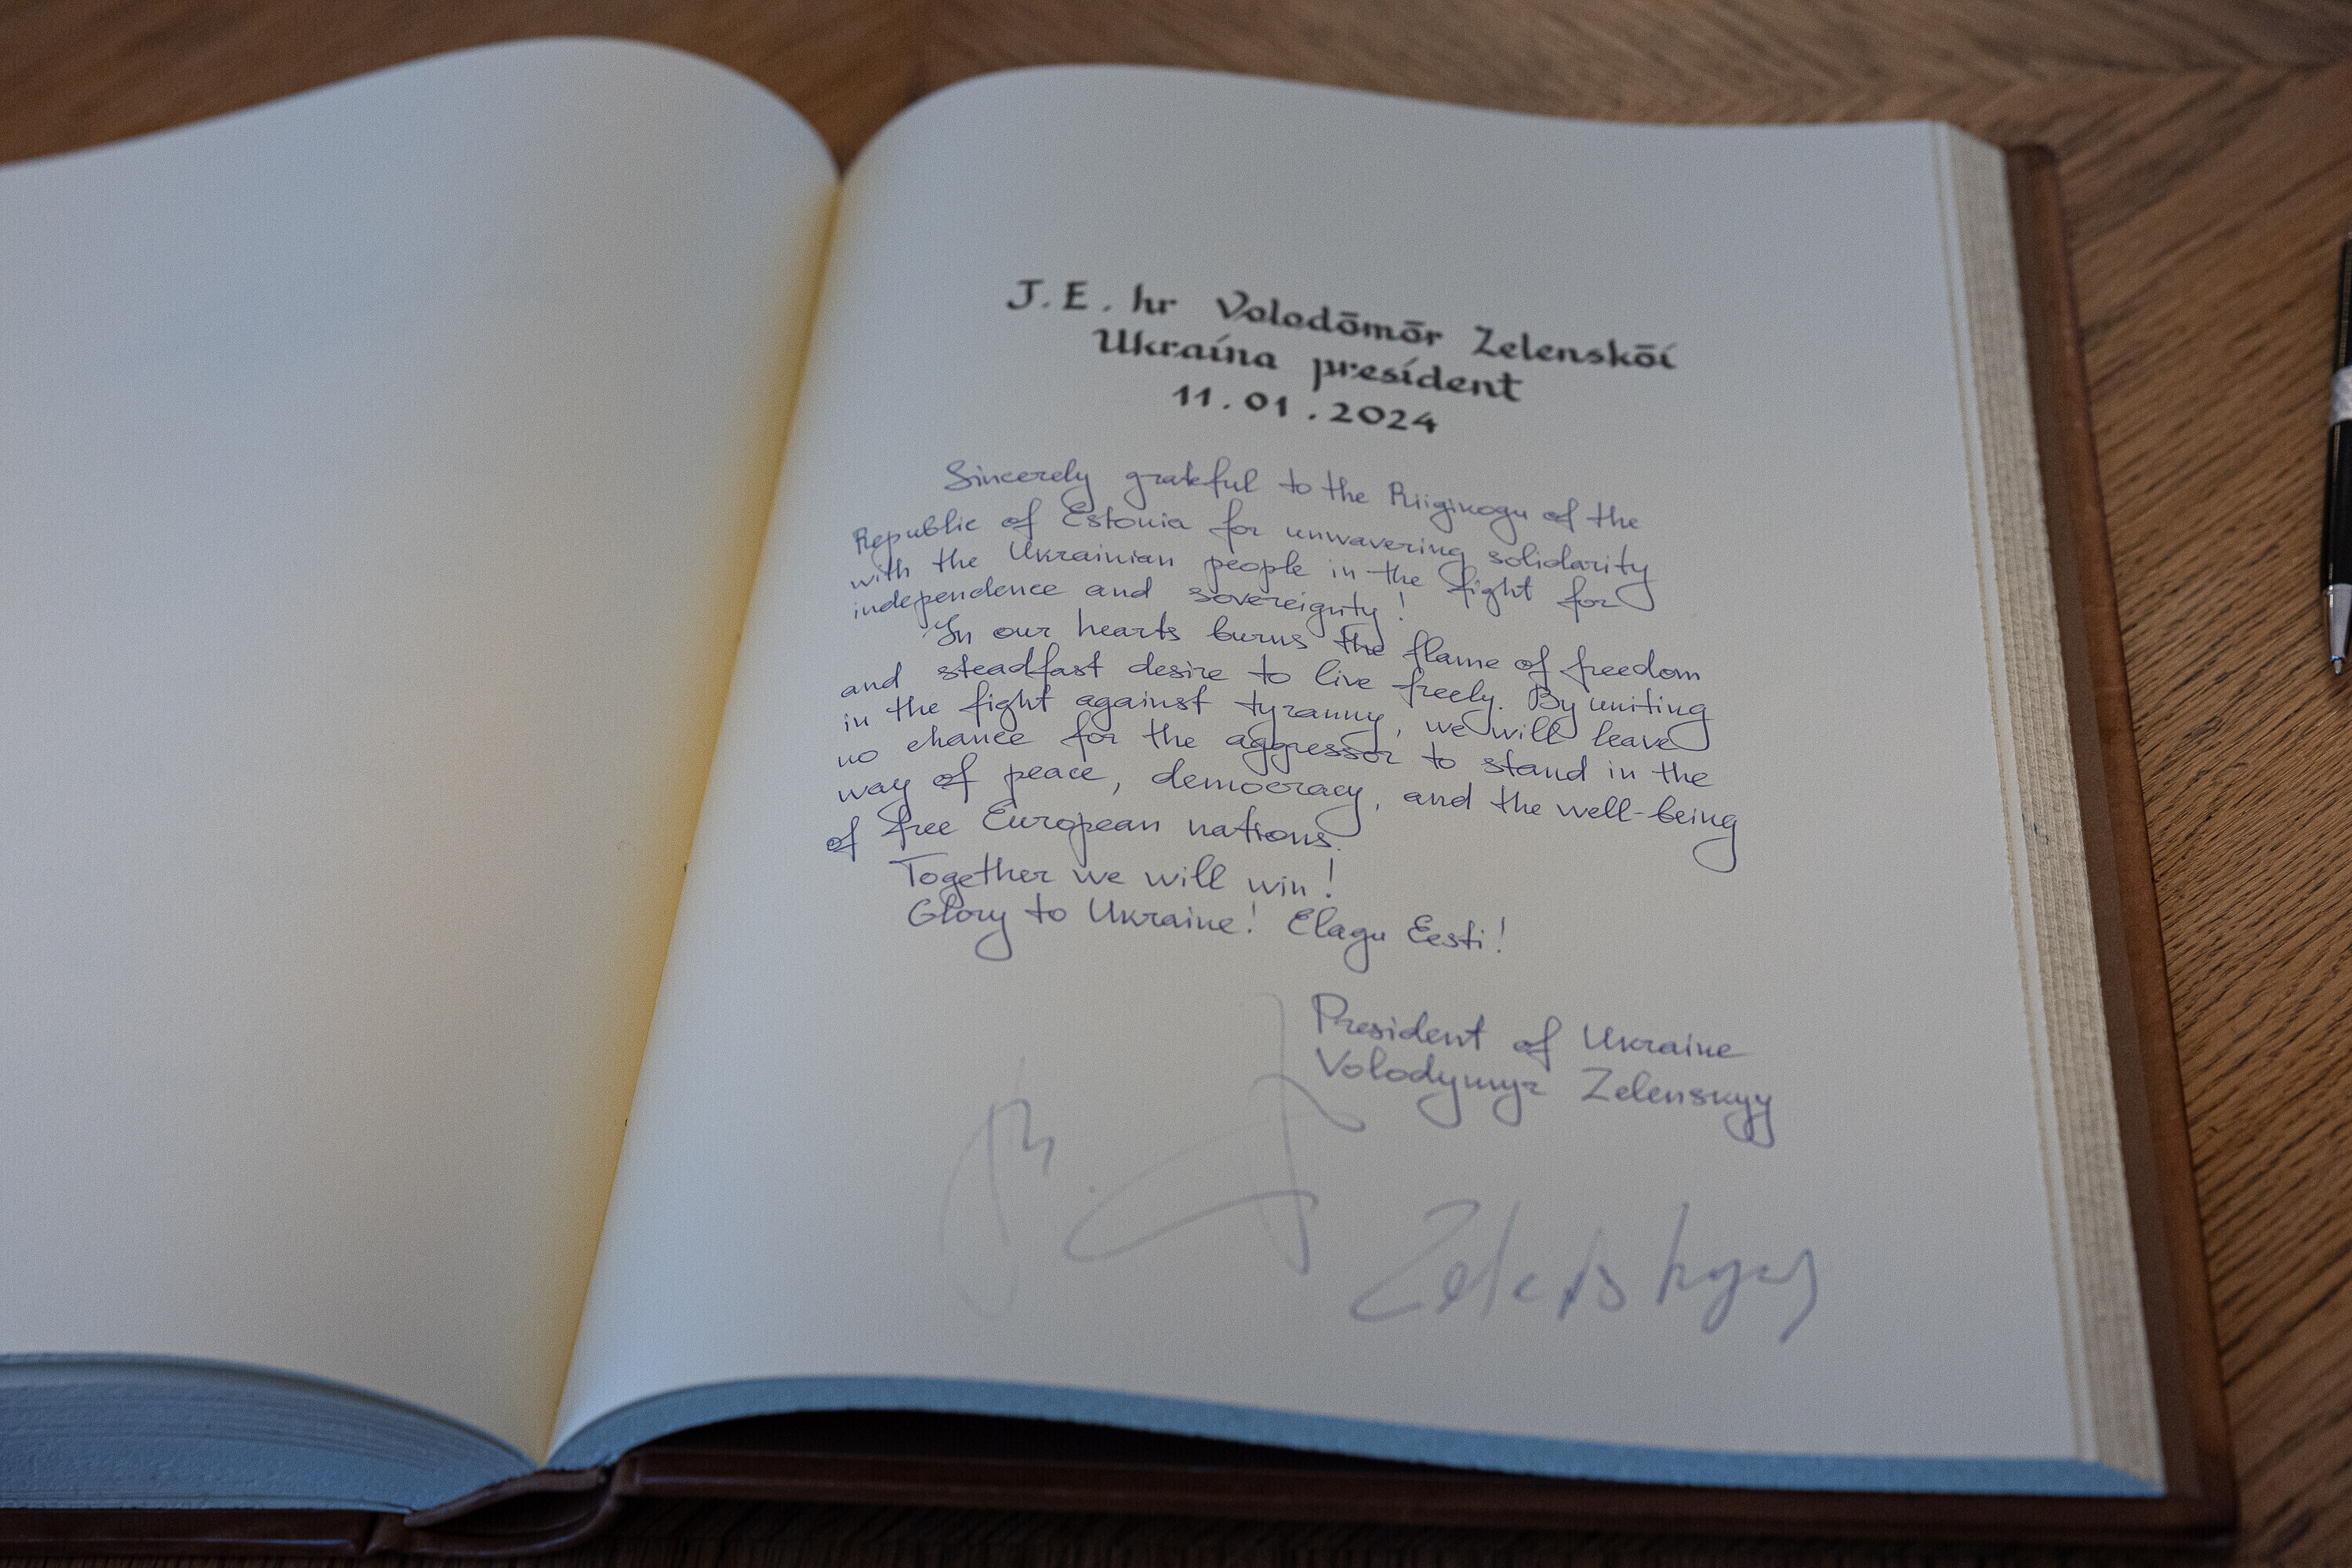 J. E. hr Volodōmōr Zelenskōi
Ukraina president
11.01.2024
Sincerely grateful to the Riigikogu of the
Republic of Estonia for unwavering solidarity
with the Ukrainian people in the fight for
independence and sovereignty!
In our hearts burns the flame of freedom
and steadfast desire to live freely. By uniting
in the fight against tyranny, we will leave
no chance for the aggressor to stand in the
way of peace, democracy, and the well-being
of free European nations.
Together we will win!
Glory to Ukraine! Elagu Eesti!
President of Ukraine
Volodymyr Zelenskyy
Zelenskyy